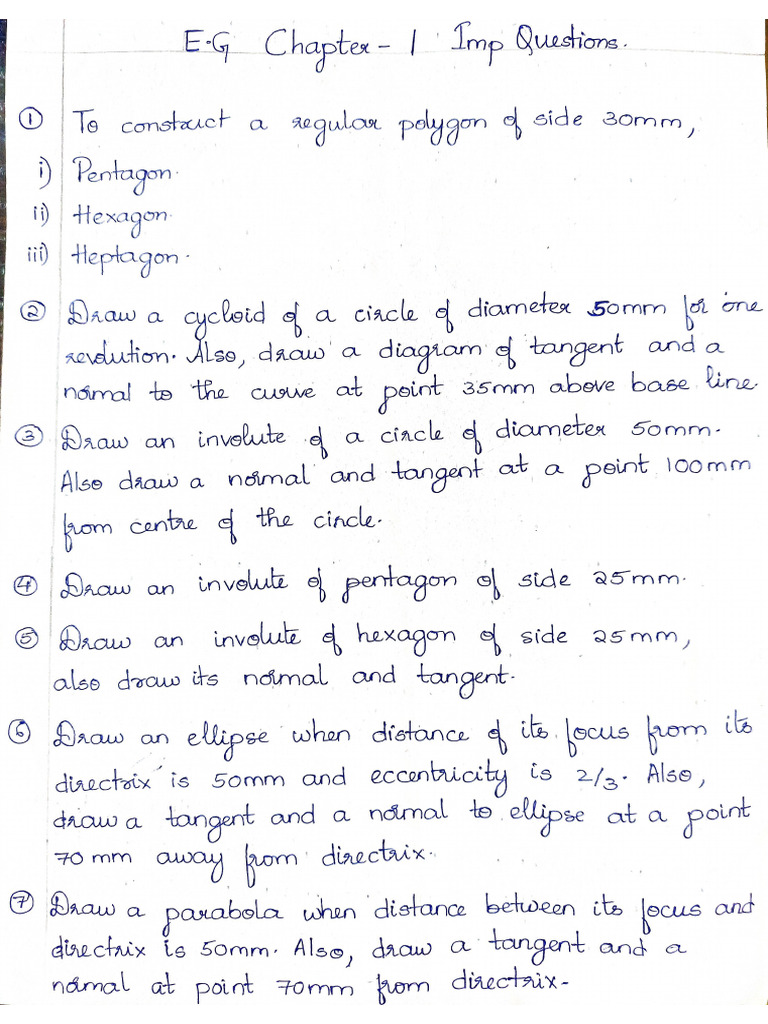 E.G Chapter - 1 Imp Questions.
① To construct a regular polygon of side 30mm,
i) Pentagon.
ii) Hexagon.
iii) Heptagon.
② Draw a cycloid of a circle of diameter 50mm for one
revolution. Also, draw a diagram of tangent and a
normal to the curve at point 35mm above base line.
③ Draw an involute of a circle of diameter 50mm.
Also draw a normal and tangent at a point 100mm
from centre of the circle.
④ Draw an involute of pentagon of side 25mm.
⑤ Draw an involute of hexagon of side 25mm,
also draw its normal and tangent.
⑥ Draw an ellipse when distance of its focus from its
directrix is 50mm and eccentricity is 2/3. Also,
draw a tangent and a normal to ellipse at a point
70 mm away from directrix.
⑦ Draw a parabola when distance between its focus and
directrix is 50mm. Also, draw a tangent and a
normal at point 70mm from directrix.